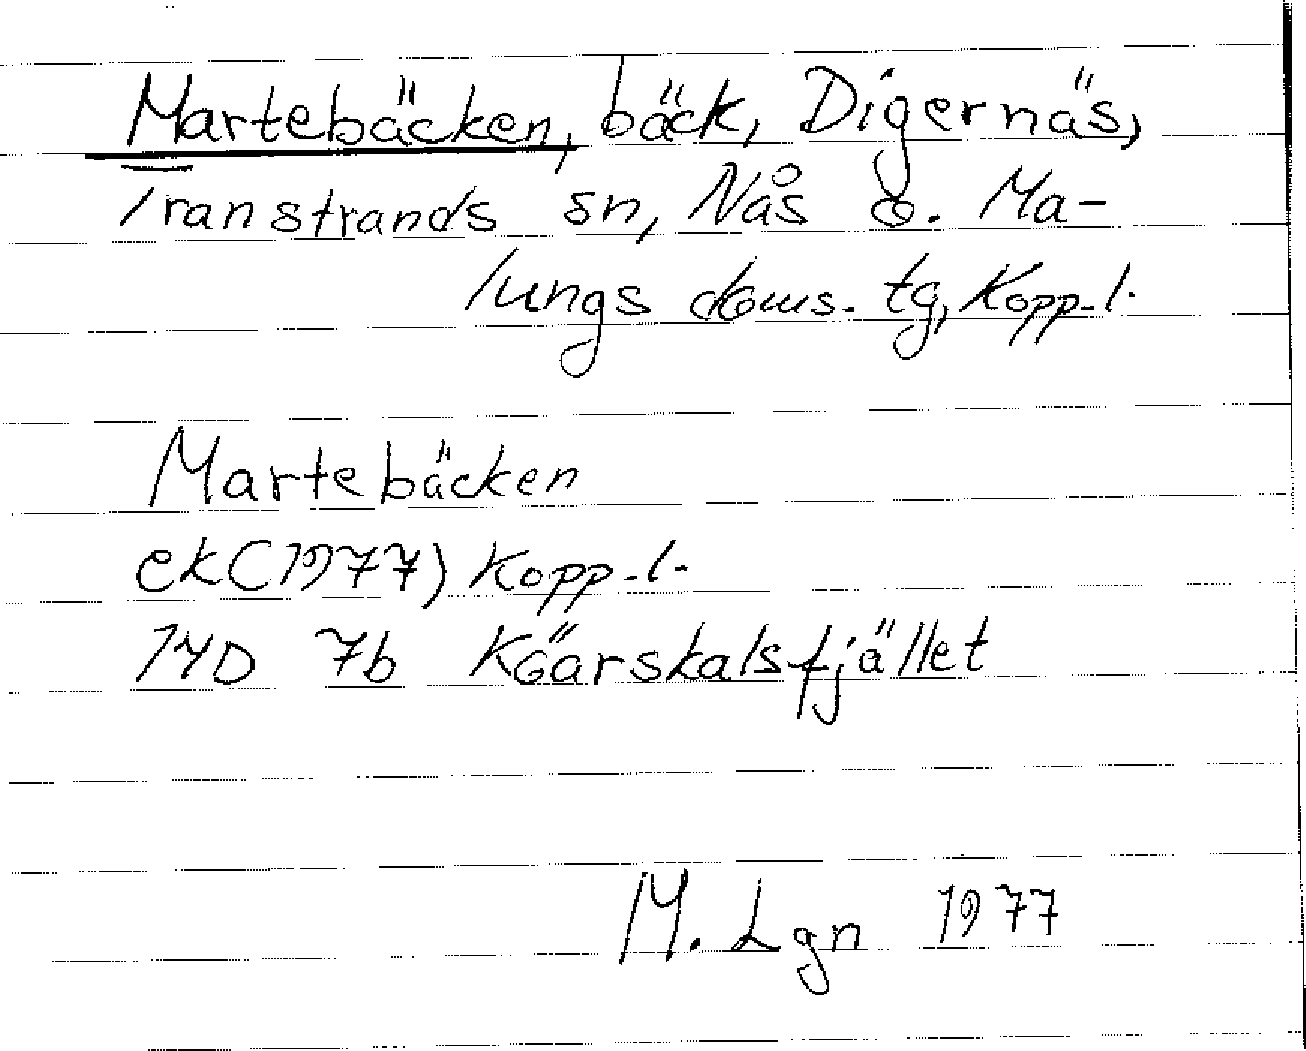 Martebäcken, bäck, Digernäs,
Transtrands sn, Nås o. Ma-
lungs doms. tg, Kopp. l.
Martebäcken
ek (1977) Kopp. l.
14D 7b Köarskalsfjället
M. Lgn 1977